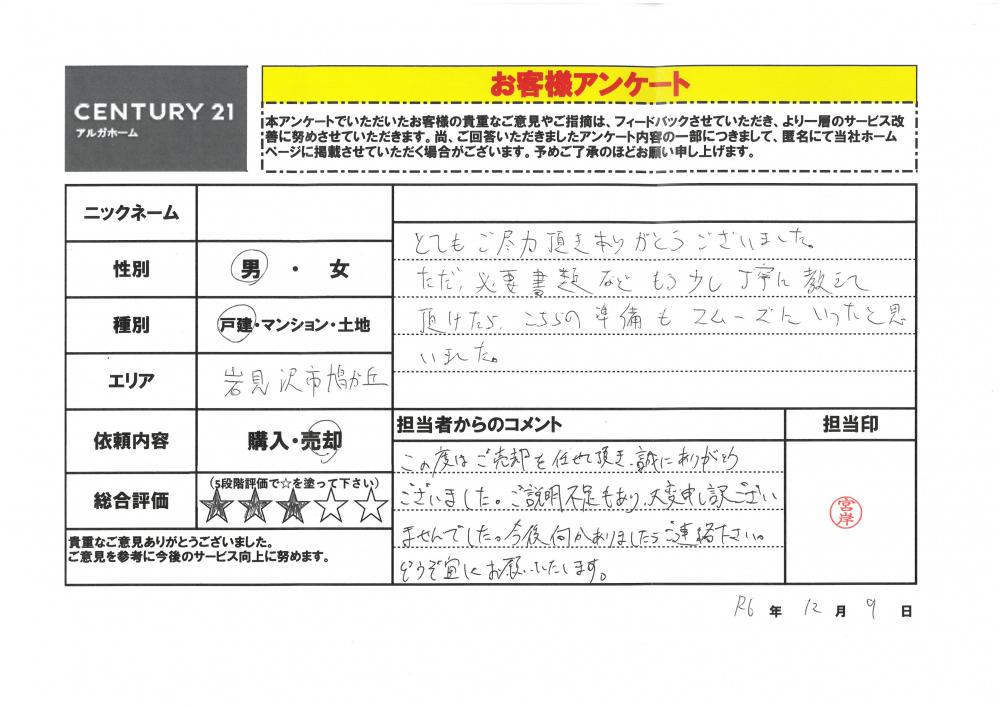 CENTURY 21
アルガホーム
お客様アンケート
本アンケートでいただいたお客様の貴重なご意見やご指摘は、フィードバックさせていただき、より一層のサービス改
善に努めさせていただきます。尚、ご回答いただきましたアンケート内容の一部につきまして、匿名にて当社ホーム
ページに掲載させていただく場合がございます。予めご了承のほどお願い申し上げます。
ニックネーム
性別 男 ・ 女
種別 戸建・マンション・土地
エリア 岩見沢市鳩が丘
依頼内容 購入・売却
総合評価 (5段階評価で☆を塗って下さい)
★★★☆☆
貴重なご意見ありがとうございました。
ご意見を参考に今後のサービス向上に努めます。
とてもご尽力頂きありがとうございました。
ただ、必要書類などもう少し丁寧に教えて
頂けたら、こちらの準備もスムーズにいったと思
いました。
担当者からのコメント
担当印
この度はご売却を任せて頂き、誠にありがとう
ございました。ご説明不足もあり、大変申し訳ござい
ませんでした。今後何かありましたらご連絡下さい。
どうぞ宜しくお願いいたします。
宮岸
R6 年 12 月 9 日